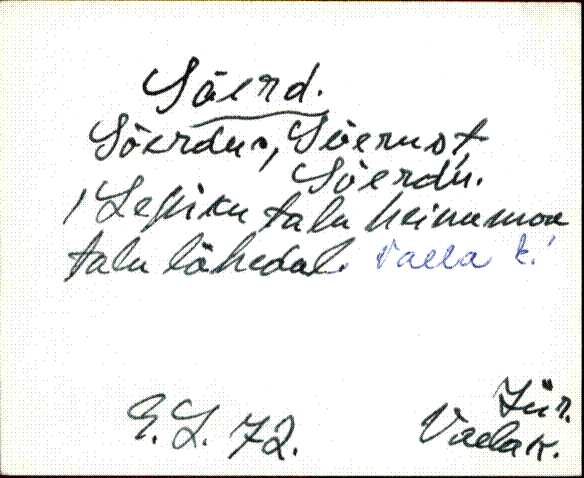 Sõerd.
Sõerdus, Sõerust,
Sõerdu.
1 Lepiku talu heinamaa
talu lähedal. Vaela k.
E.L. 72.
Jür.
Vaela k.